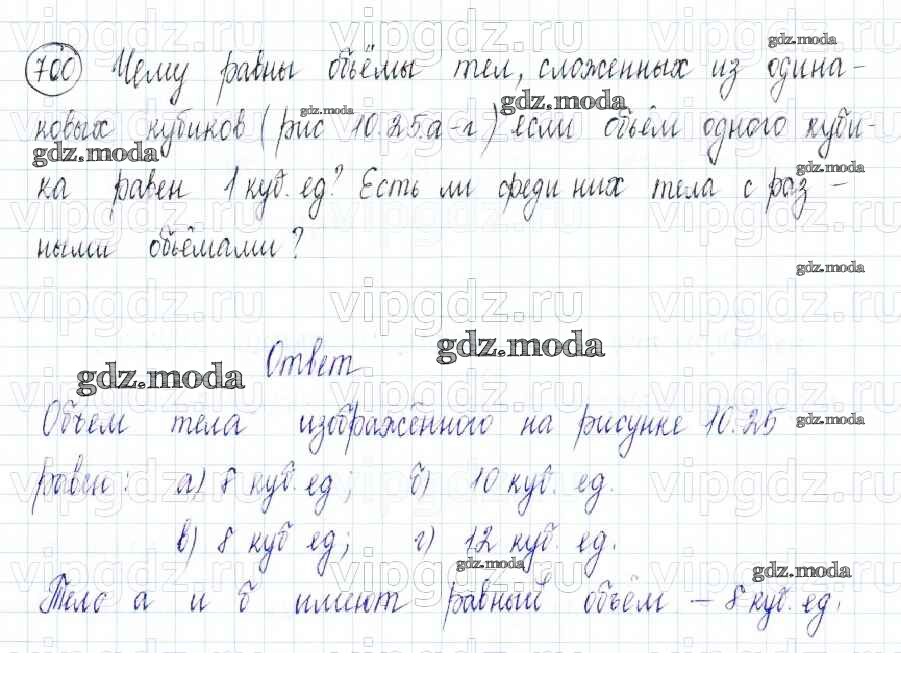 700 Чему равны объёмы тел, сложенных из одина-
ковых кубиков (рис 10.25.а-г) если объём одного куби-
ка равен 1 куб. ед? Есть ли среди них тела с раз-
ными объёмами?
Ответ
Объем тела изображённого на рисунке 10.25
равен: а) 8 куб. ед; б) 10 куб. ед.
в) 8 куб ед; г) 12 куб. ед.
Тело а и б имеют равный объём - 8 куб. ед.
gdz.moda
vipgdz.ru